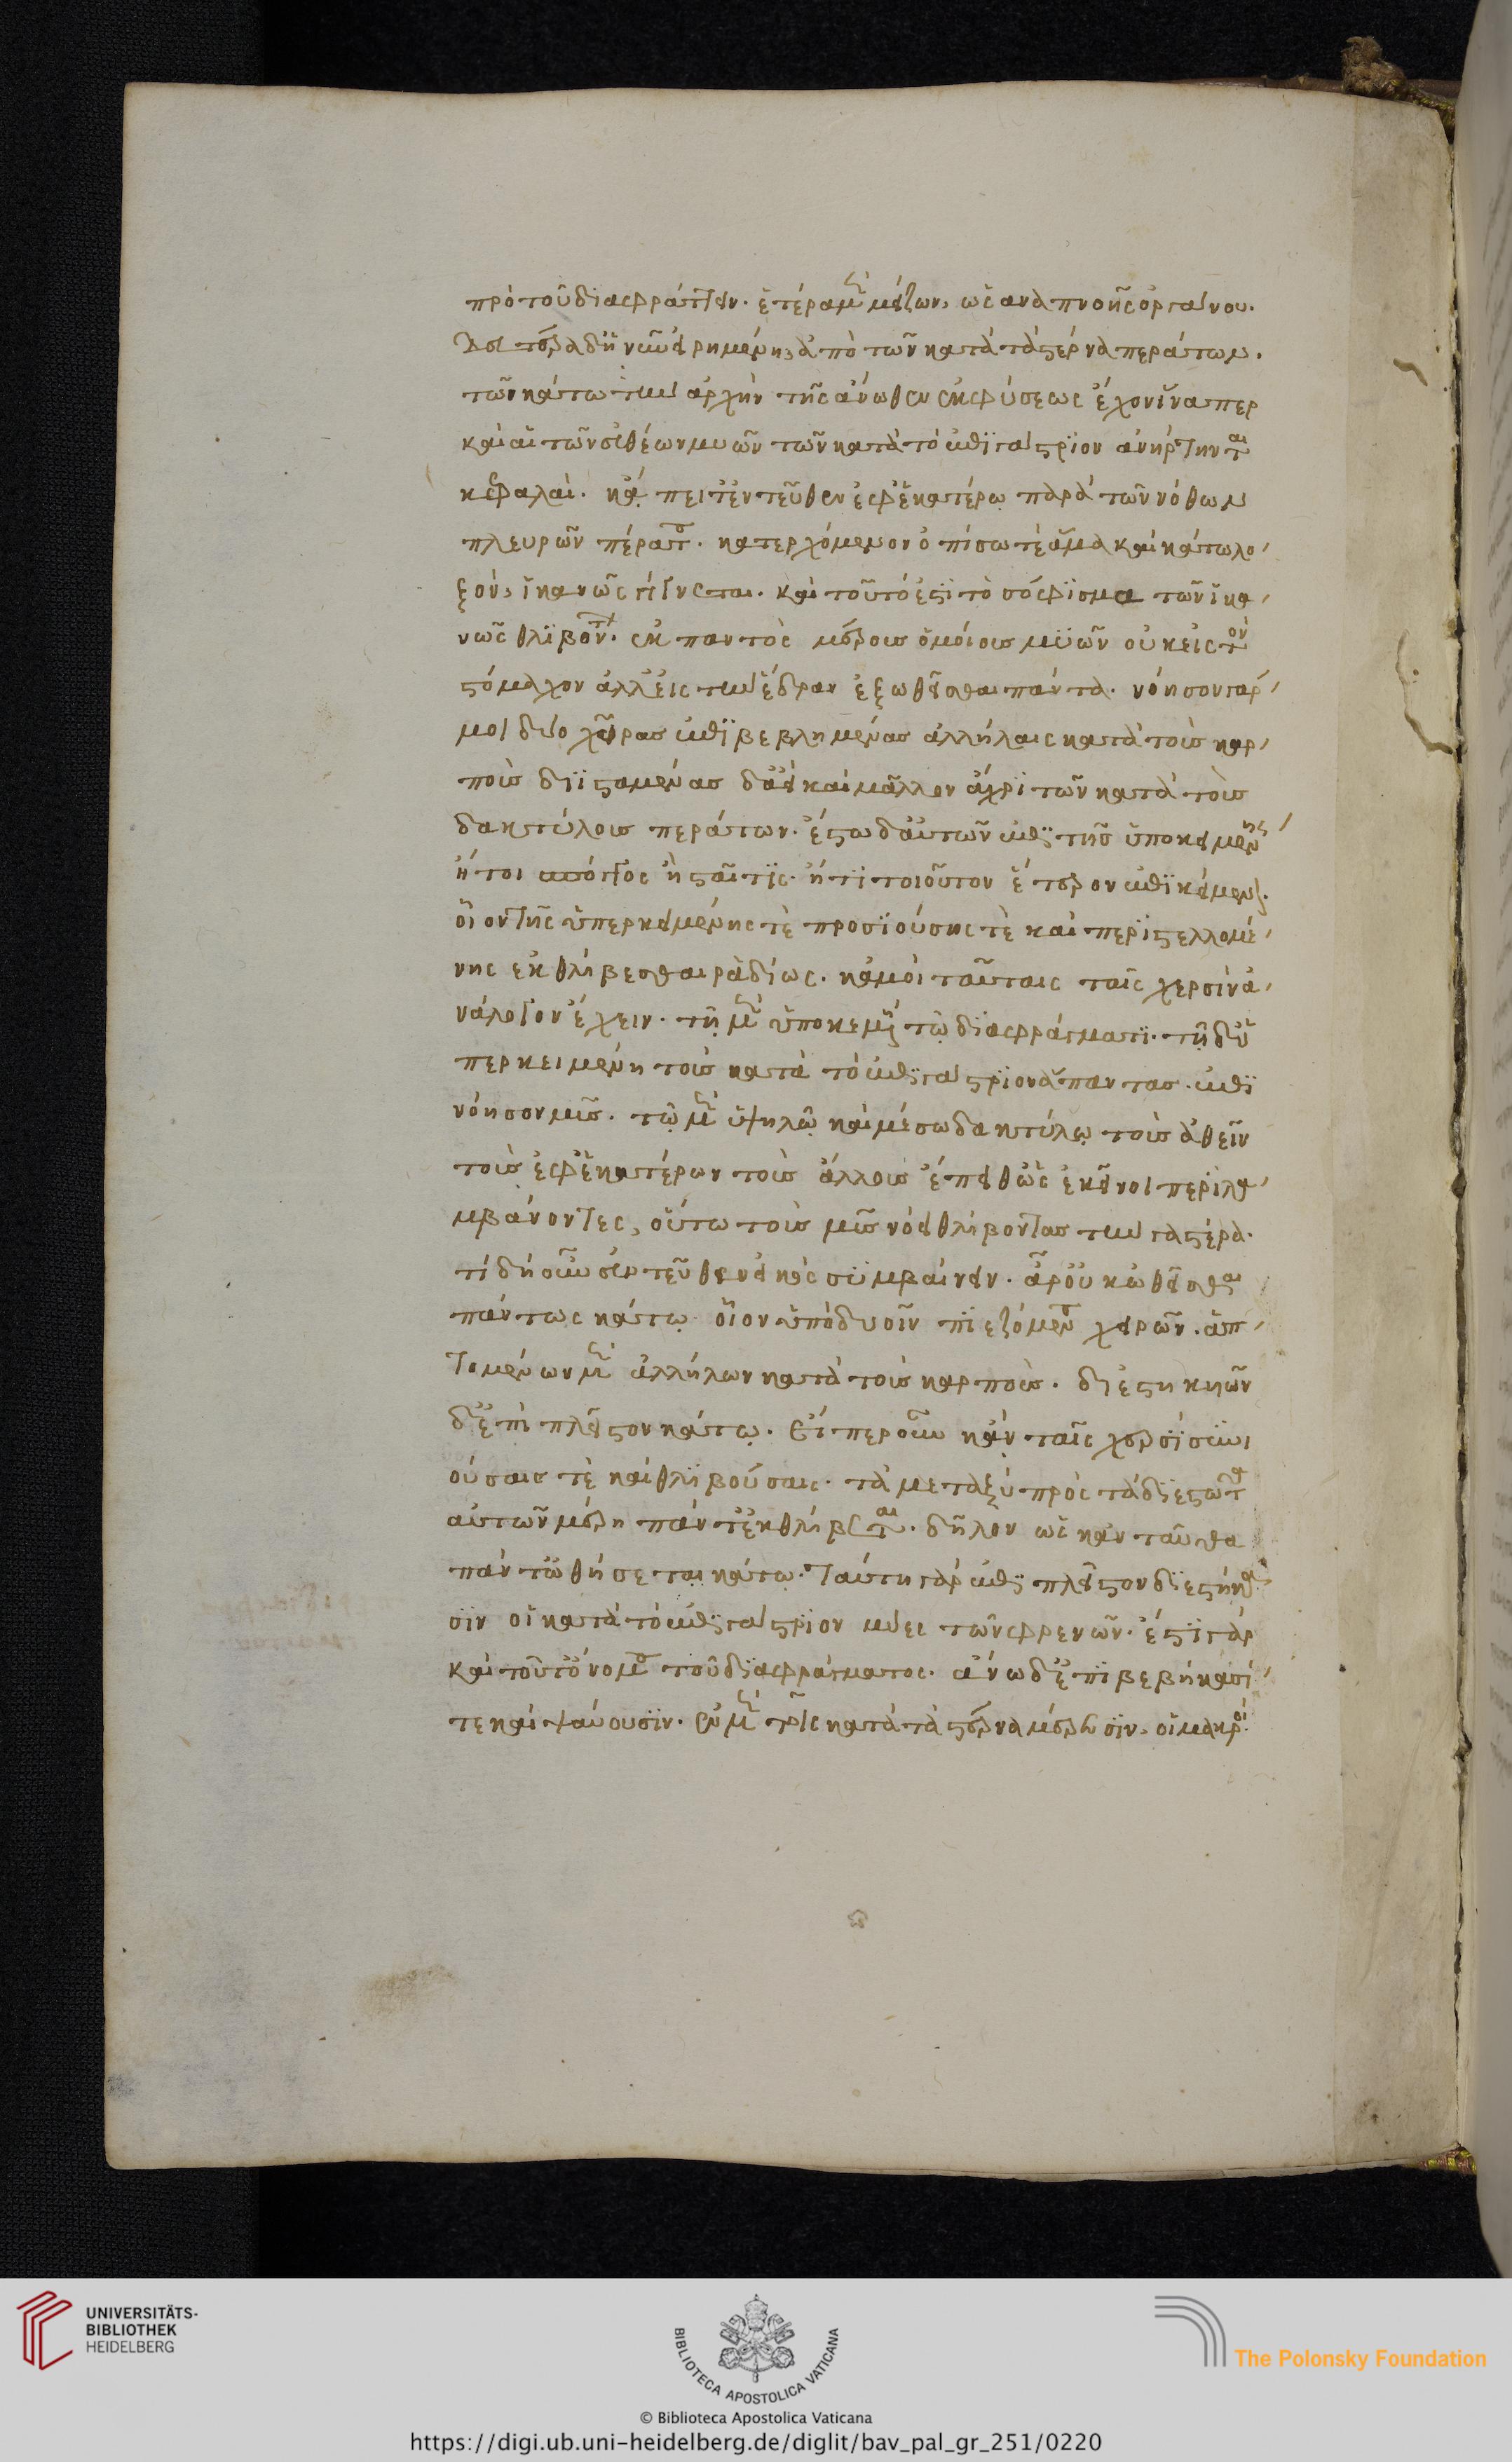 πρὸ τοῦ διαφράττειν· ἑτέρα μὲν μείζων, ὡς ἀναπνοῆς ὀργάνου.
τῶν κάτω τὴν ἀρχὴν τῆς ἄνωθεν ἐκφύσεως ἔχον ἵναπερ
καὶ αἱ τῶν εὐθέων μυῶν τῶν κατὰ τὸ ἐπιγάστριον ἀνήρτηνται
κεφαλαί· κἄπειτ' ἐντεῦθεν ἐφ' ἑκατέρω παρὰ τῶν νόθων
πλευρῶν πέρατα· κατερχόμενον ὀπίσω τὲ ἅμα καὶ κάτω λο
ξὸν, ἱκανῶς γίγνεται. καὶ τοῦτό ἐστι τὸ σόφισμα τῶν ἱκα
νῶς θλιβόντων· ἐκ παντὸς μέρους ὁμοίους μυῶν οὐκ εἰς τὸν
στόμαχον ἀλλ' εἰς τὴν ἕδραν ἐξωθεῖσθαι πάντα. νόησον γάρ
μοι δύο χεῖρας ἐπιβεβλημένας ἀλλήλαις κατὰ τοὺς καρ
ποὺς διϊσταμένας δ' ἀεὶ καὶ μᾶλλον ἄχρι τῶν κατὰ τοὺς
δακτύλους περάτων. ἔστω δ' αὐτῶν ἐπὶ τῆς ὑποκειμένης
ἤτοι σπόγγος ἢ σταῖ τις· ἤ τι τοιοῦτον ἕτερον ἐπικείμενον.
οἷον τῆς ὑπερκειμένης τὲ προσιούσης τὲ καὶ περιστελλομέ
νης ἐκθλίβεσθαι ῥαδίως. κἀμοὶ ταύταις ταῖς χερσὶν ἀ
νάλογον ἔχειν· τῇ μὲν ὑποκειμένῃ τῷ διαφράγματι· τῇ δ' ὑ
περκειμένη τοὺς κατὰ τὸ ἐπιγάστριον ἅπαντας· ἐπι
νόησον μῦς· τῷ μὲν ὑψηλῷ καὶ μέσω δακτύλῳ τοὺς εὐθεῖς
τοὺς ἐφ' ἑκατέρων τοὺς ἄλλους ἔπειθ' ὡς ἐκεῖνοι περιλα
μβάνοντες, οὕτω τοὺς μῦς νόει θλίβοντας τὴν γαστέρα.
τί δὴ οὖν ἐντεῦθεν εἰκὸς συμβαίνειν. ἆρ' οὐκ ὠθεῖσθαι
πάντως κάτω οἷον ὑπὸ δυοῖν πιεζόμενον χειρῶν· ἁπ
τομένων μὲν ἀλλήλων κατὰ τοὺς καρποὺς· διεστηκυιῶν
δ' ἐπὶ πλεῖστον κάτω. εἴπερ οὖν κἀν ταῖς χερσὶ συνι
ούσαις τὲ καὶ θλιβούσαις· τὰ μεταξὺ πρὸς τὰ διεστῶτα
αὐτῶν μέρη πάντ' ἐκθλίβεται· δῆλον ὡς κἀνταῦθα
πάντ' ὠθήσεται κάτω. ταύτη γὰρ ἐπὶ πλεῖστον διεστήκα
σιν οἱ κατὰ τὸ ἐπιγάστριον μύες τῶν φρενῶν· ἔστι γὰρ
καὶ τοῦτ' ὄνομα τοῦ διαφράγματος. ἄνω δ' ἐπιβεβήκασί
τε καὶ ψαύουσιν. ἐν μὲν τοῖς κατὰ τὰ στέρνα μέρεσιν, οἱ μακροί·
UNIVERSITÄTS-
BIBLIOTHEK
HEIDELBERG
BIBLIOTECA APOSTOLICA VATICANA
The Polonsky Foundation
© Biblioteca Apostolica Vaticana
https://digi.ub.uni-heidelberg.de/diglit/bav_pal_gr_251/0220